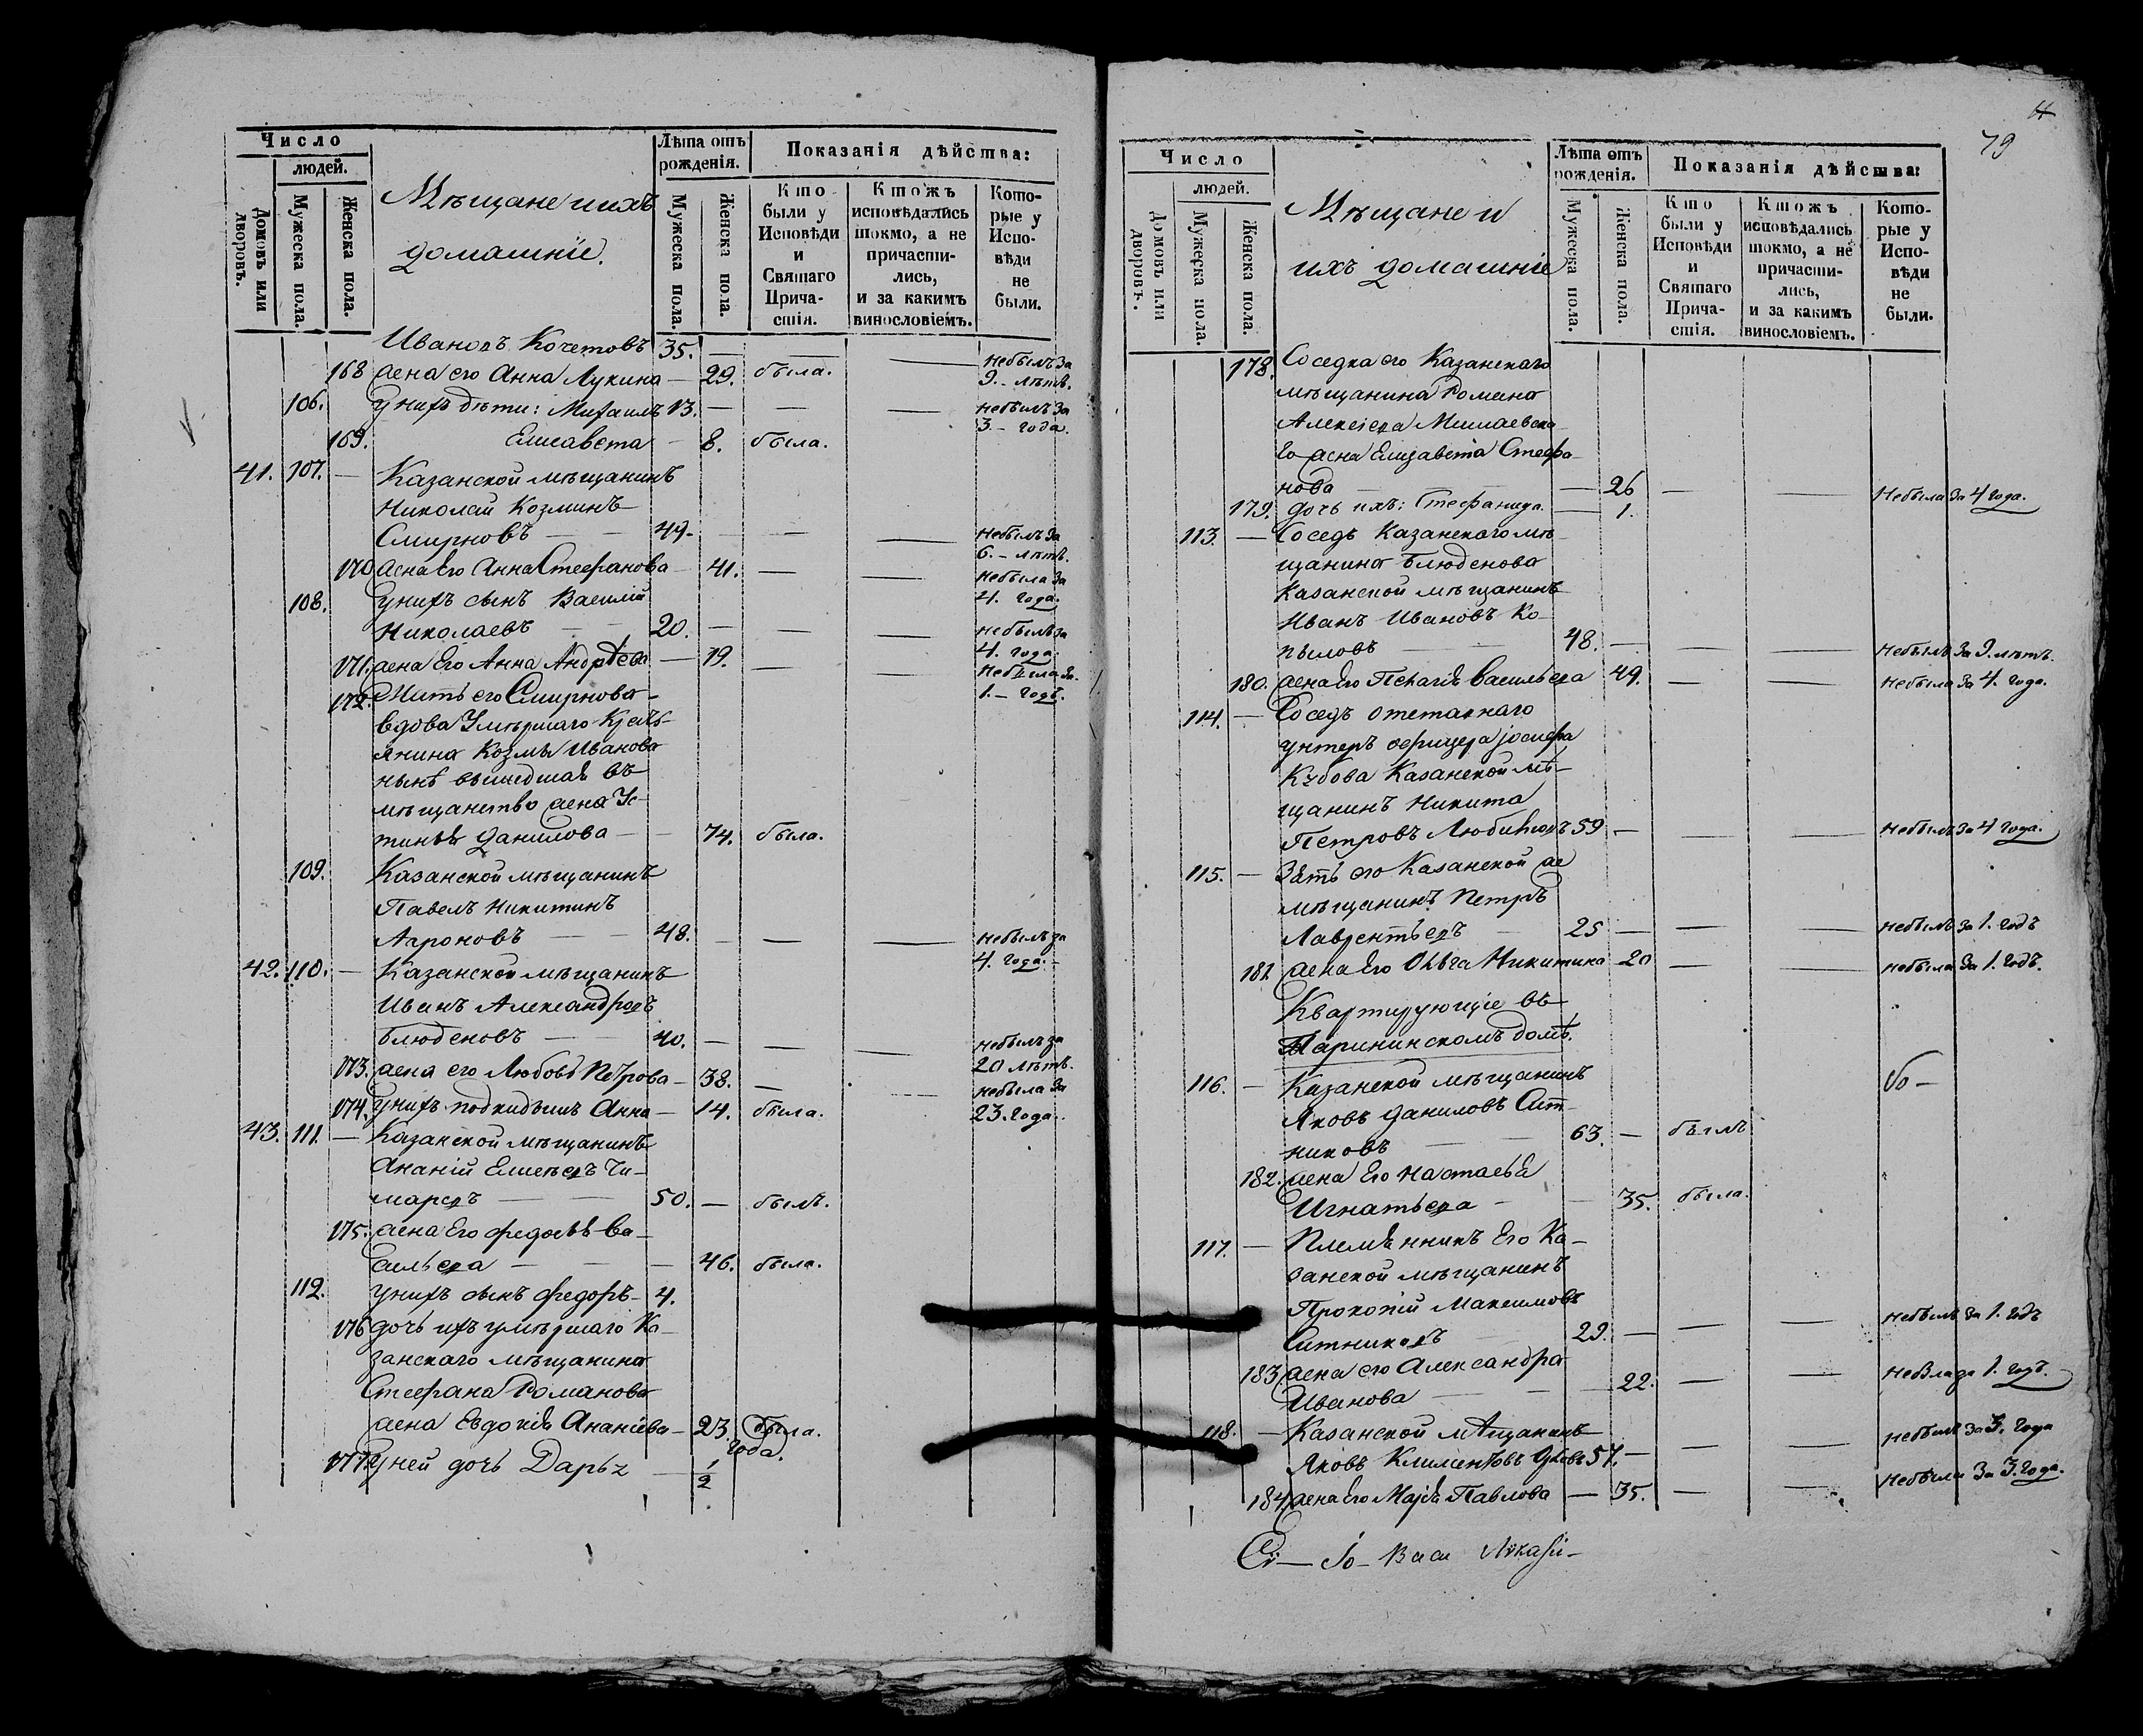 Число
людей.
Домовъ или дворовъ.
Мужеска пола.
Женска пола.
Мѣщане и ихъ
домашніе.
Лѣта отъ рожденія.
Мужеска пола.
Женска пола.
Показанія дѣйства:
Кто были у Исповѣди и Святаго Причастія.
Ктожъ исповѣдались токмо, а не причастились, и за какимъ винословіемъ.
Которые у Исповѣди не были.
Ивановъ Кочетовъ 35. — — — небылъ за 9.- лѣтъ.
168 жена его Анна Лукина — 29. была.
106. у нихъ дѣти: Михаилъ 13. — — — небылъ за 3.- года.
169. Елисавета — 8. была.
41. 107. — Казанской мѣщанинъ
Николай Козминъ
Смирновъ — — 49. — — — небылъ за 6.- лѣтъ.
170 жена Его Анна Стефанова — 41. — — небыла за 4. года.
108. у нихъ сынъ Василій
Николаевъ — — 20. — — — небылъ за 4. года.
171. жена Его Анна Андрѣева — 19. — — небыла за 1.- годъ.
172. Мать его Смирнова
вдова умѣршаго Кресть-
янина Козмы Иванова
нынѣ вышедшая въ
мѣщанство жена Ус-
тинья Данилова — — 74. была.
109. Казанской мѣщанинъ
Павелъ Никитинъ
Аароновъ — — 48. — — — небылъ за 4. года.-
42. 110. — Казанской мѣщанинъ
Иванъ Александровъ
Блюденовъ — — 40. — — — небылъ за 20 лѣтъ.
173. жена его Любовь Петрова — 38. — — небыла за 23. года.
174. у нихъ подкидышъ Анна — 14. была.
43. 111. — Казанской мѣщанинъ
Ананій Елисѣевъ Чи-
маревъ — — 50. — былъ.
175. жена Его Федосья Ва-
сильева — — — 46. была.
112. у нихъ сынъ Федоръ — 4.
176 дочь ихъ умѣршаго Ка-
занскаго мѣщанина
Стефана Романова
жена Евдокія Ананіева — 23. была.
177. у ней дочь Дарья — 1/2 года.
79
Число
людей.
Домовъ или дворовъ.
Мужеска пола.
Женска пола.
Мѣщане и
ихъ домашніе
Лѣта отъ рожденія.
Мужеска пола.
Женска пола.
Показанія дѣйства:
Кто были у Исповѣди и Святаго Причастія.
Ктожъ исповѣдались токмо, а не причастились, и за какимъ винословіемъ.
Которые у Исповѣди не были.
178. Соседка его Казанскаго
мѣщанина Романа
Алексіева
го жена Елизавета Стефа-
нова — 26 — — Небыла за 4 года.
179. дочь ихъ: Стефанида. — 1.
113. — Соседъ Казанскаго мѣ-
щанина Блюденова
Казанской мѣщанинъ
Иванъ Ивановъ Ко-
пыловъ — — 48. — — — небылъ за 9. лѣтъ.
180. жена Его Пелагія Васильева 49. — — небыла за 4. года.
114. — Соседъ отставнаго
унтеръ офицера Іосифа
Казанской мѣ-
щанинъ Никита
Петровъ 59 — — — небылъ за 4 года.
115. — Зять его Казанской же
мѣщанинъ Петръ
Лаврентьевъ — 25 — — — небылъ за 1. годъ
181 жена Его Ольга Никитина 20 — — небыла за 1. годъ.
Квартирующіе въ
домѣ.
116. — Казанской мѣщанинъ
Яковъ Даниловъ Сит-
никовъ — — 63. — былъ
182. жена Его Настасья
Игнатьева — — 35. была.
117. — Племянникъ Его Ка-
занской мѣщанинъ
Прокопій Максимовъ
Ситниковъ — 29. — — — небылъ за 1. годъ
183. жена его Александра
Иванова — — 22. — — небыла за 1. годъ.
118. — Казанской мѣщанинъ
Яковъ Климентовъ 57. — — — небылъ за 3. года
184. жена Его Марья Павлова — 35. — — небыла за 3. года.